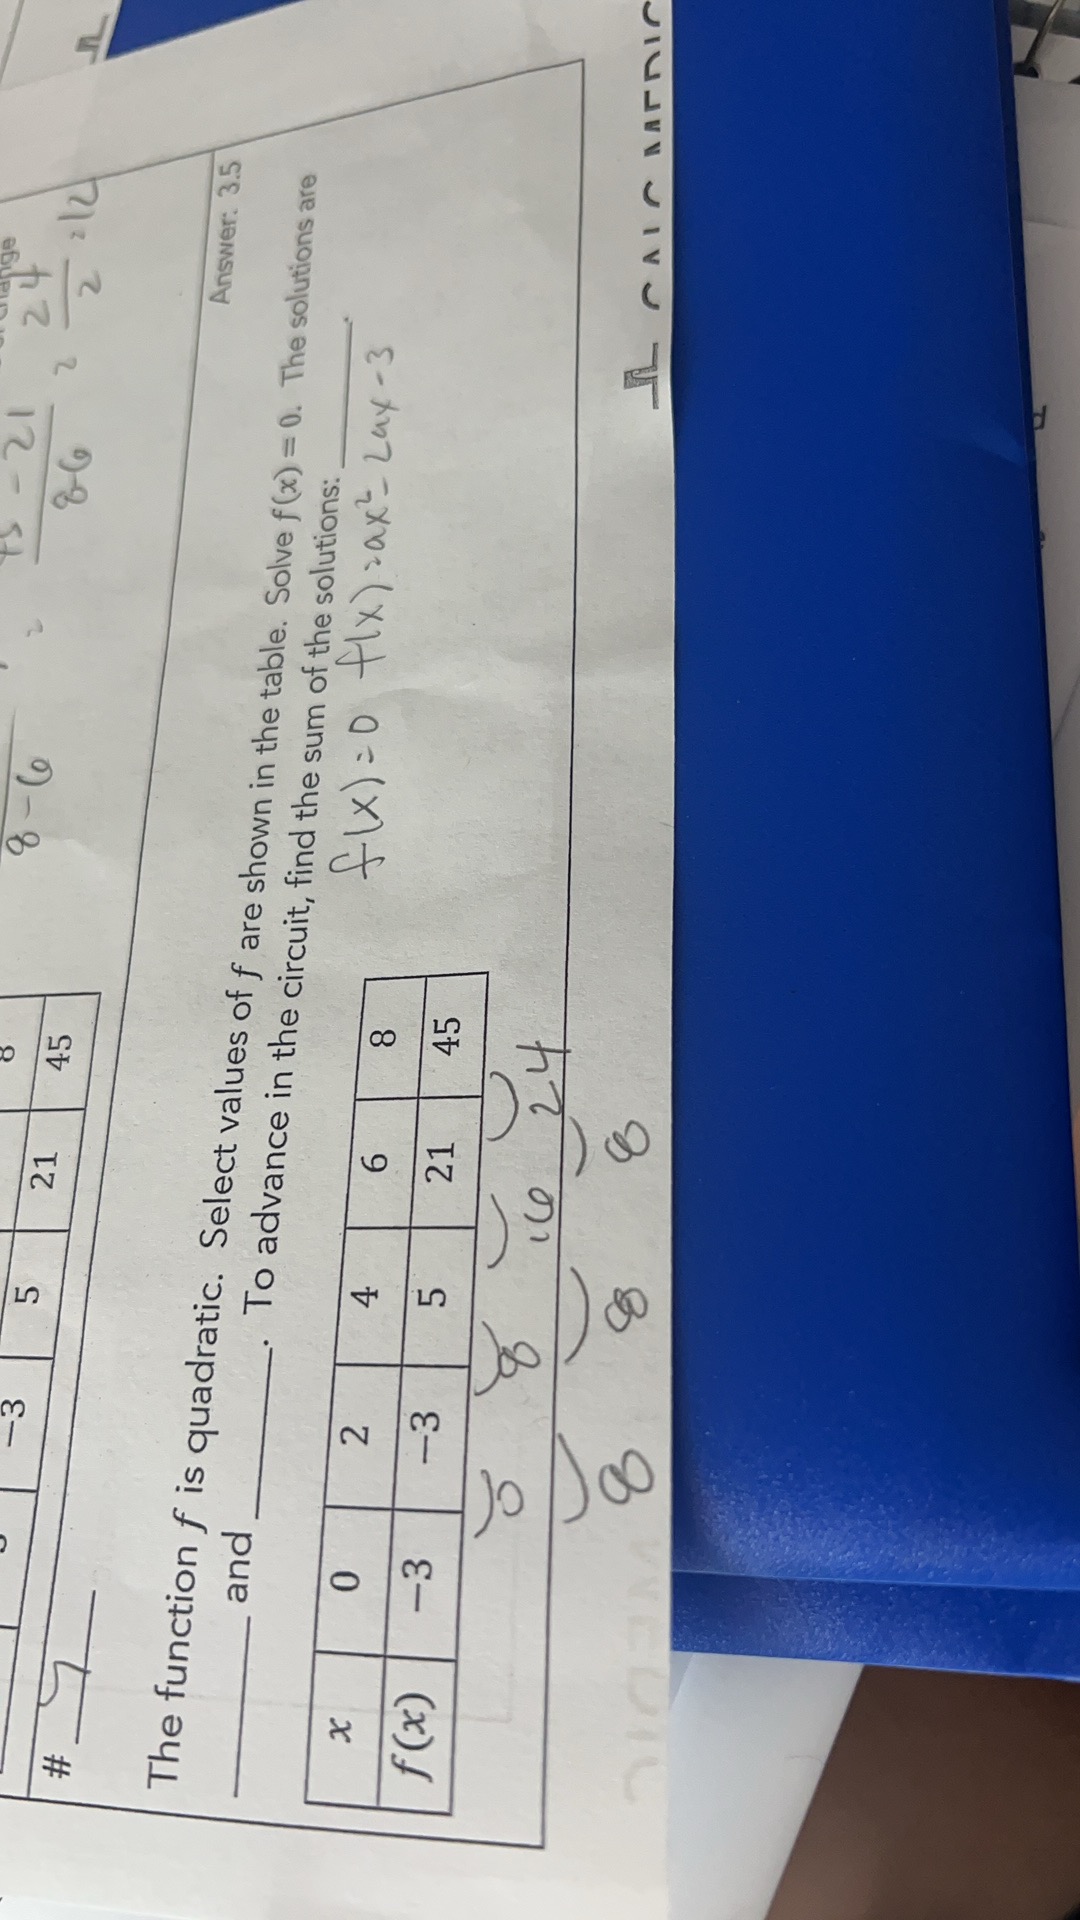 8 - 6
=
- 21
8-6
=
24
2
= 12
5 21 45
-3
# 7
Answer: 3.5
The function f is quadratic. Select values of f are shown in the table. Solve f(x) = 0. The solutions are
____ and ____. To advance in the circuit, find the sum of the solutions: ____.
f(x) = 0 f(x) = ax² - 2ax - 3
x 0 2 4 6 8
f(x) -3 -3 5 21 45
0 8 16 24
8 8 8
CALC MEDIC